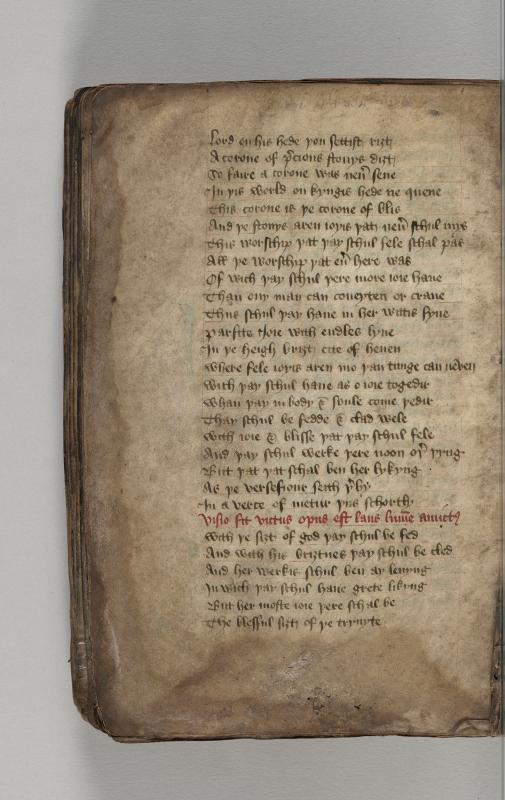 Lord on his hede þou settist riȝt
A corone of p̄cious stonys diȝt
So faire a corone was neu̅ sene
In þis world on kyngis hede ne quene
This corone is þe corone of blis
And þe stonys aren ioyis þat neu̅ schul mys
This worschip þat þay schul fele schal pas
All þe worschip þat eu̅ here was
Of wich þay schul þere more ioie haue
Than ony man can coueyten or craue
Thus schul þay haue in her wittis fyue
Parfite Ioie with endles lyue
In þe heigh briȝt cite of heuen
Where fele ioyis aren mo þan tunge can neuen
With þay schul haue as o ioie togedir
Whan þay in body & soule come þedir
Thay schul be fedde & clad wele
With ioie & blisse þat þay schul fele
And þay schul werke þere noon oþ̅ þyng
But þat þat schal ben her lykyng
As þe versefiour seith þ̅ by
In a verce of metur þus schortly
Visio sit victus opus est laus lume̅ amict9
With þe siȝt of god þay schul be fed
And with his briȝtnes þay schul be cled
And her werkis schul ben ay louyng
In wich þay schul haue grete likyng
But her moste ioie þere schal be
The blessful siȝt of þe trynyte